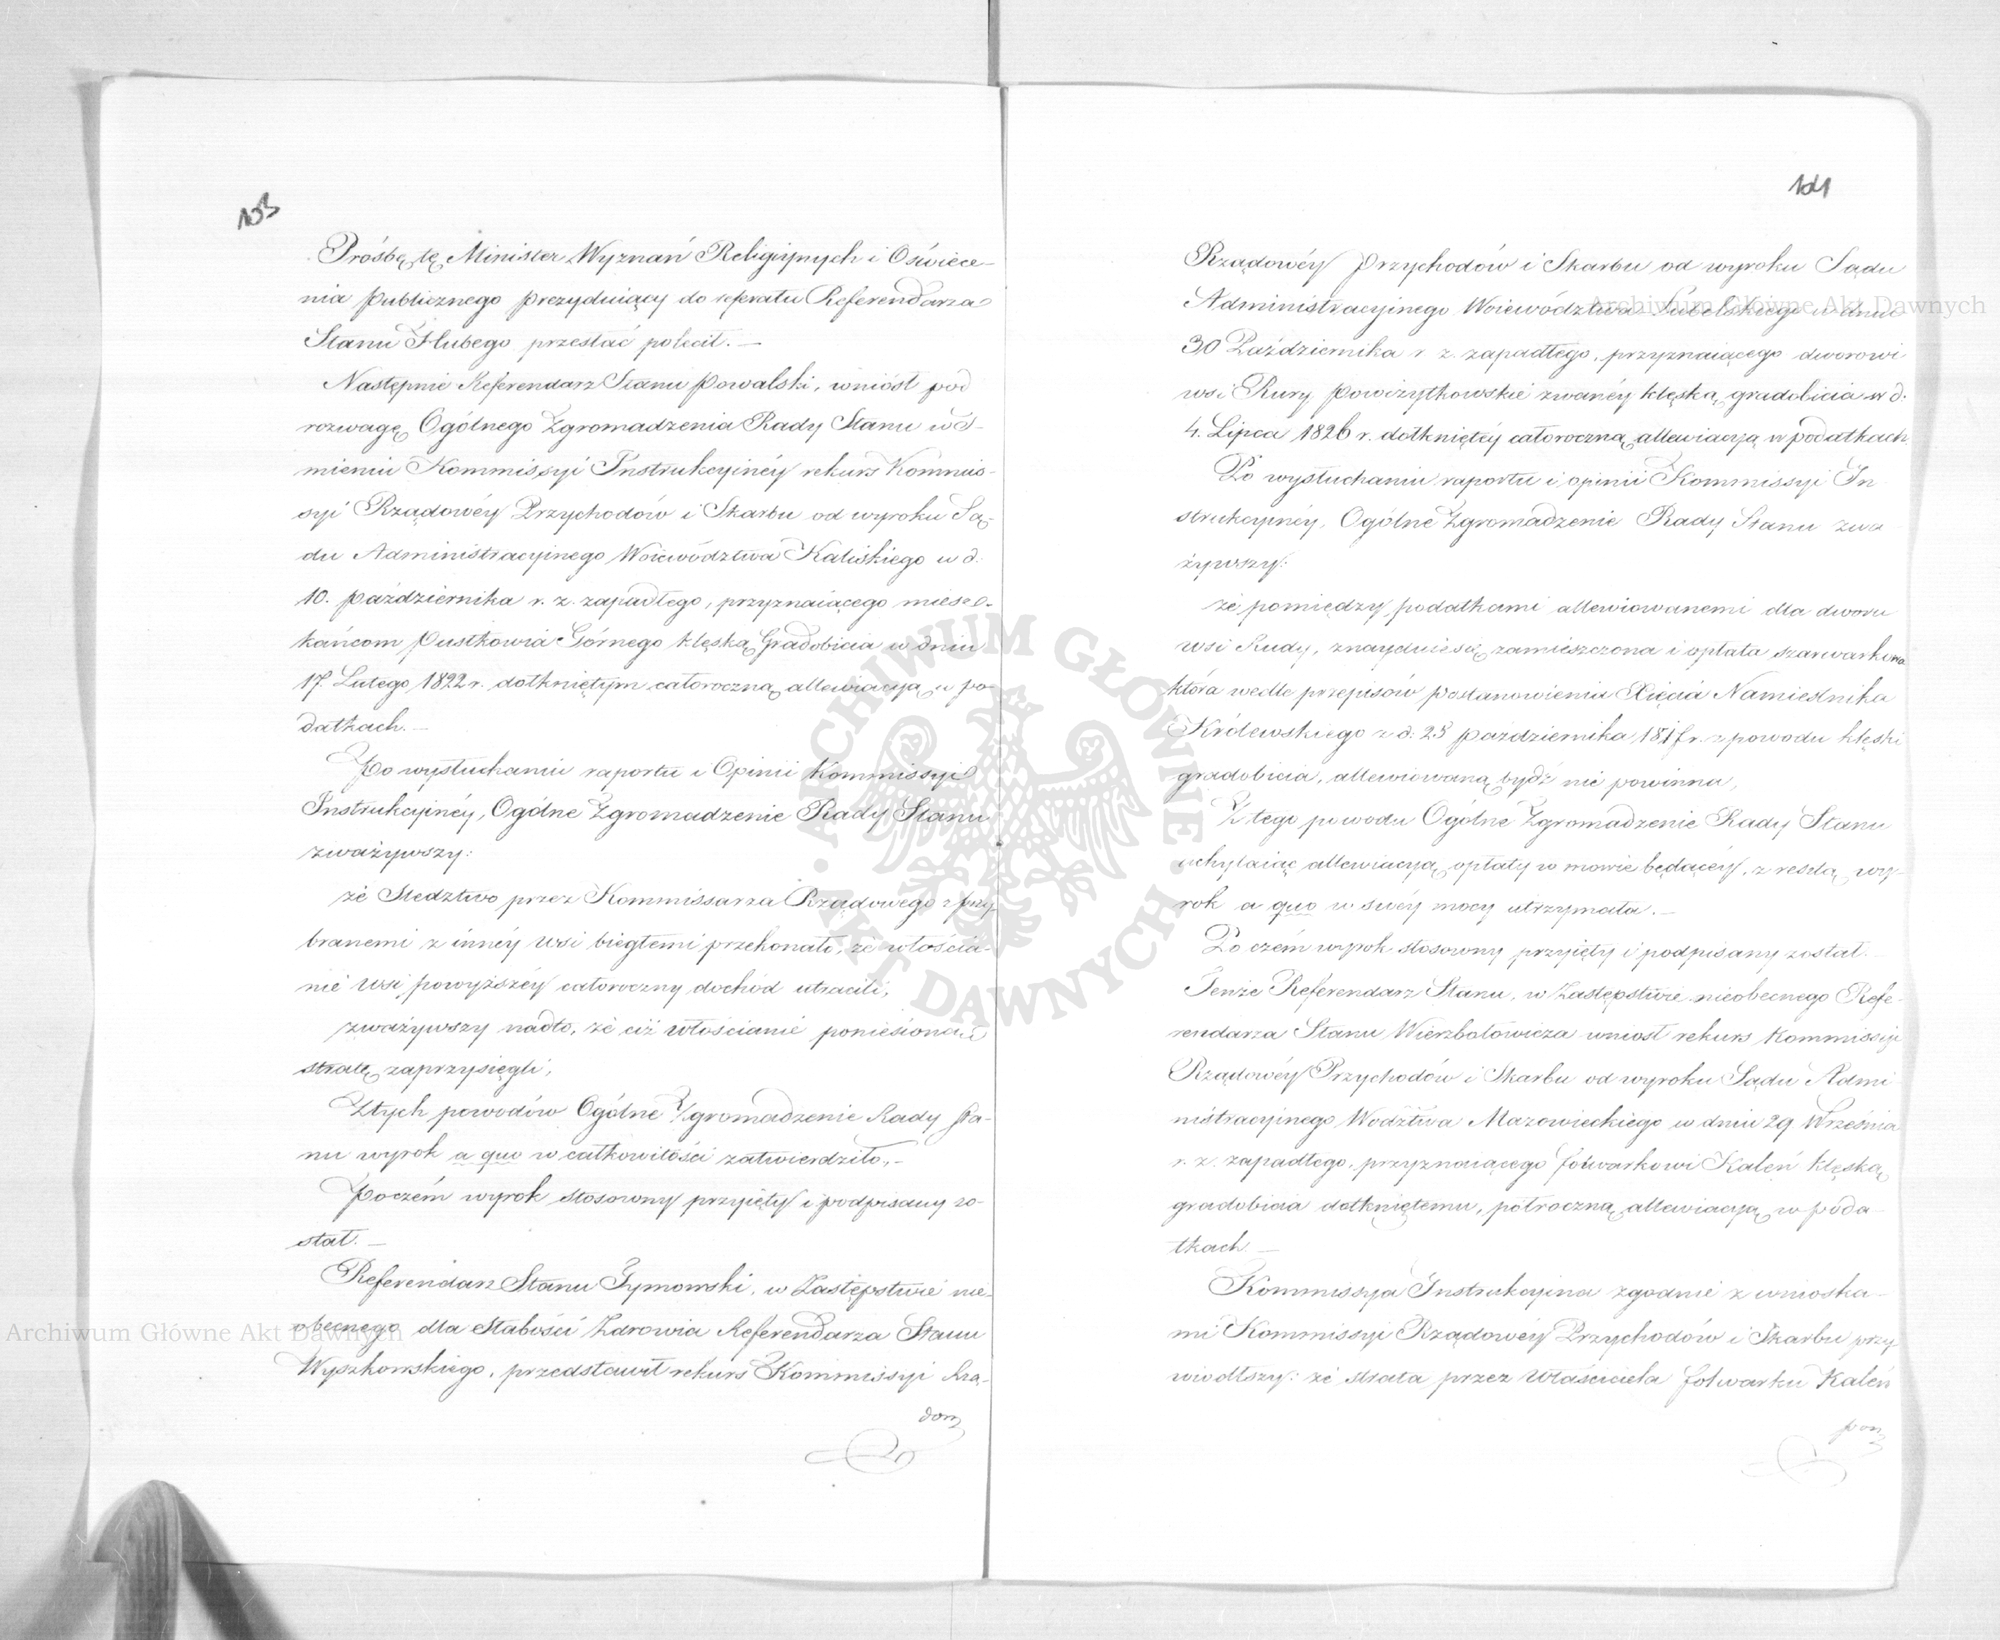 103
Prośbę tę Minister Wyznań Religijnych i Oświece-
nia publicznego prezyduiący do referatu Referendarza
Stanu Hubego przesłać polecił. —
Następnie Referendarz Stanu Powalski, wniósł pod
rozwagę Ogólnego Zgromadzenia Rady Stanu w J-
mieniu Kommissyi Instrukcyinéy rekurs Kommis-
syi Rządowéy Przychodów i Skarbu od wyroku Są-
du Administracyinego Woiewództwa Kaliskiego w d.
10. października r. z. zapadłego, przyznaiącego miesz-
kańcom Pustkowia Górnego klęską Gradobicia w dniu
17. Lutego 1822 r. dotkniętym całoroczną allewiacyą w po-
datkach. —
Po wysłuchaniu raportu i Opinii Kommissyi
Instrukcyinéy, Ogólne Zgromadzenie Rady Stanu
zważywszy:
że Śledztwo przez Kommissarza Rządowego z przy-
branemi z innéy wsi biegłemi przekonało, że włościa-
nie wsi powyższéy całoroczny dochód utracili,
zważywszy nadto, że ciż włościanie poniesioną
stratę zaprzysięgli,
Z tych powodów Ogólne Zgromadzenie Rady Sta-
nu wyrok a quo w całkowitości zatwierdziło. —
Poczém wyrok stosowny przyięty i podpisany zo-
stał. —
Referendarz Stanu Tymowski, w Zastępstwie nie-
obecnego dla słabości Zdrowia Referendarza Stanu
Wyszkowskiego, przedstawił rekurs Kommissyi Rzą-
dow
104
Rządowéy Przychodów i Skarbu od wyroku Sądu
Administracyinego Woiewództwa Lubelskiego w dniu
30 Października r. z. zapadłego, przyznaiącego dworowi
wsi Rury Powizytkowskie zwanéy klęską gradobicia w d.
4. Lipca 1826 r. dotkniętéy całoroczną allewiacyą w podatkach.
Po wysłuchaniu raportu i opinii Kommissyi In
strukcyinéy, Ogólne Zgromadzenie Rady Stanu zwa
żywszy:
że pomiędzy podatkami allewiowanemi dla dworu
wsi Rudy, znayduie się zamieszczona i opłata szarwarkowa
która wedle przepisów postanowienia Xięcia Namiestnika
Królewskiego z d. 28 października 181 r. z powodu klęski
gradobicia, allewiowaną bydź nie powinna,
Z tego powodu Ogólne Zgromadzenie Rady Stanu
uchylaiąc allewiacyą opłaty w mowie będącéy, z resztą wy-
rok a quo w swéy mocy utrzymała. —
Po czém wyrok stosowny przyięty i podpisany został. —
Tenże Referendarz Stanu, w Zastępstwie nieobecnego Refe-
rendarza Stanu Wierzbołowicza wniósł rekurs Kommissyi
Rządowéy Przychodów i Skarbu od wyroku Sądu Admi
nistracyinego Wodztwa Mazowieckiego w dniu 29 Września
r. z. zapadłego, przyznaiącego folwarkowi Kaleń klęską
gradobicia dotkniętemu, półroczną allewiacyą w poda
tkach. —
Kommissya Instrukcyina zgodnie z wnioska-
mi Kommissyi Rządowéy Przychodów i Skarbu przy
wiodłszy: że strata przez właściciela folwarku Kaleń
pon
Archiwum Główne Akt Dawnych
Archiwum Główne Akt Dawnych
ARCHIWUM GŁÓWNE AKT DAWNYCH